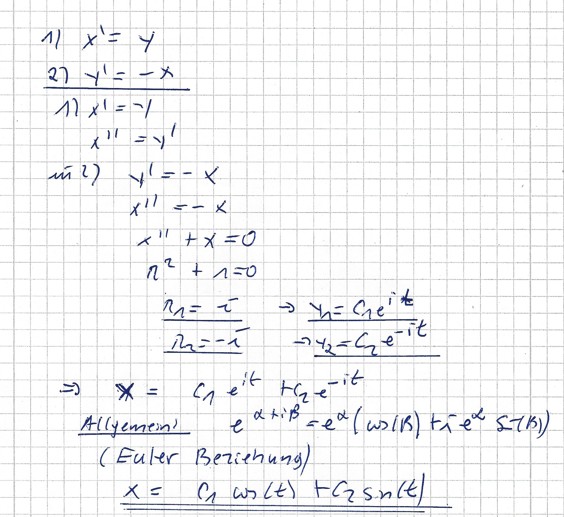 1) x' = y
2) y' = - x
1) x' = y
x'' = y'
in 2) y' = - x
x'' = - x
x'' + x = 0
r² + 1 = 0
r₁ = i → y₁ = C₁ e^{it}
r₂ = -i → y₂ = C₂ e^{-it}
⇒ x = C₁ e^{it} + C₂ e^{-it}
Allgemein: e^{α+iβ} = e^α (cos(β) + i e^α sin(β))
(Euler Beziehung)
x = C₁ cos(t) + C₂ sin(t)